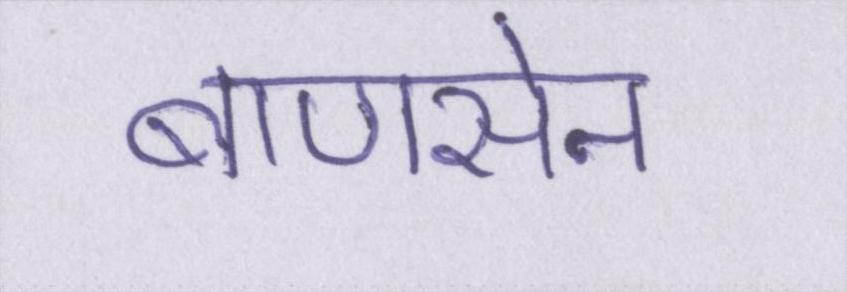 बाणसेन